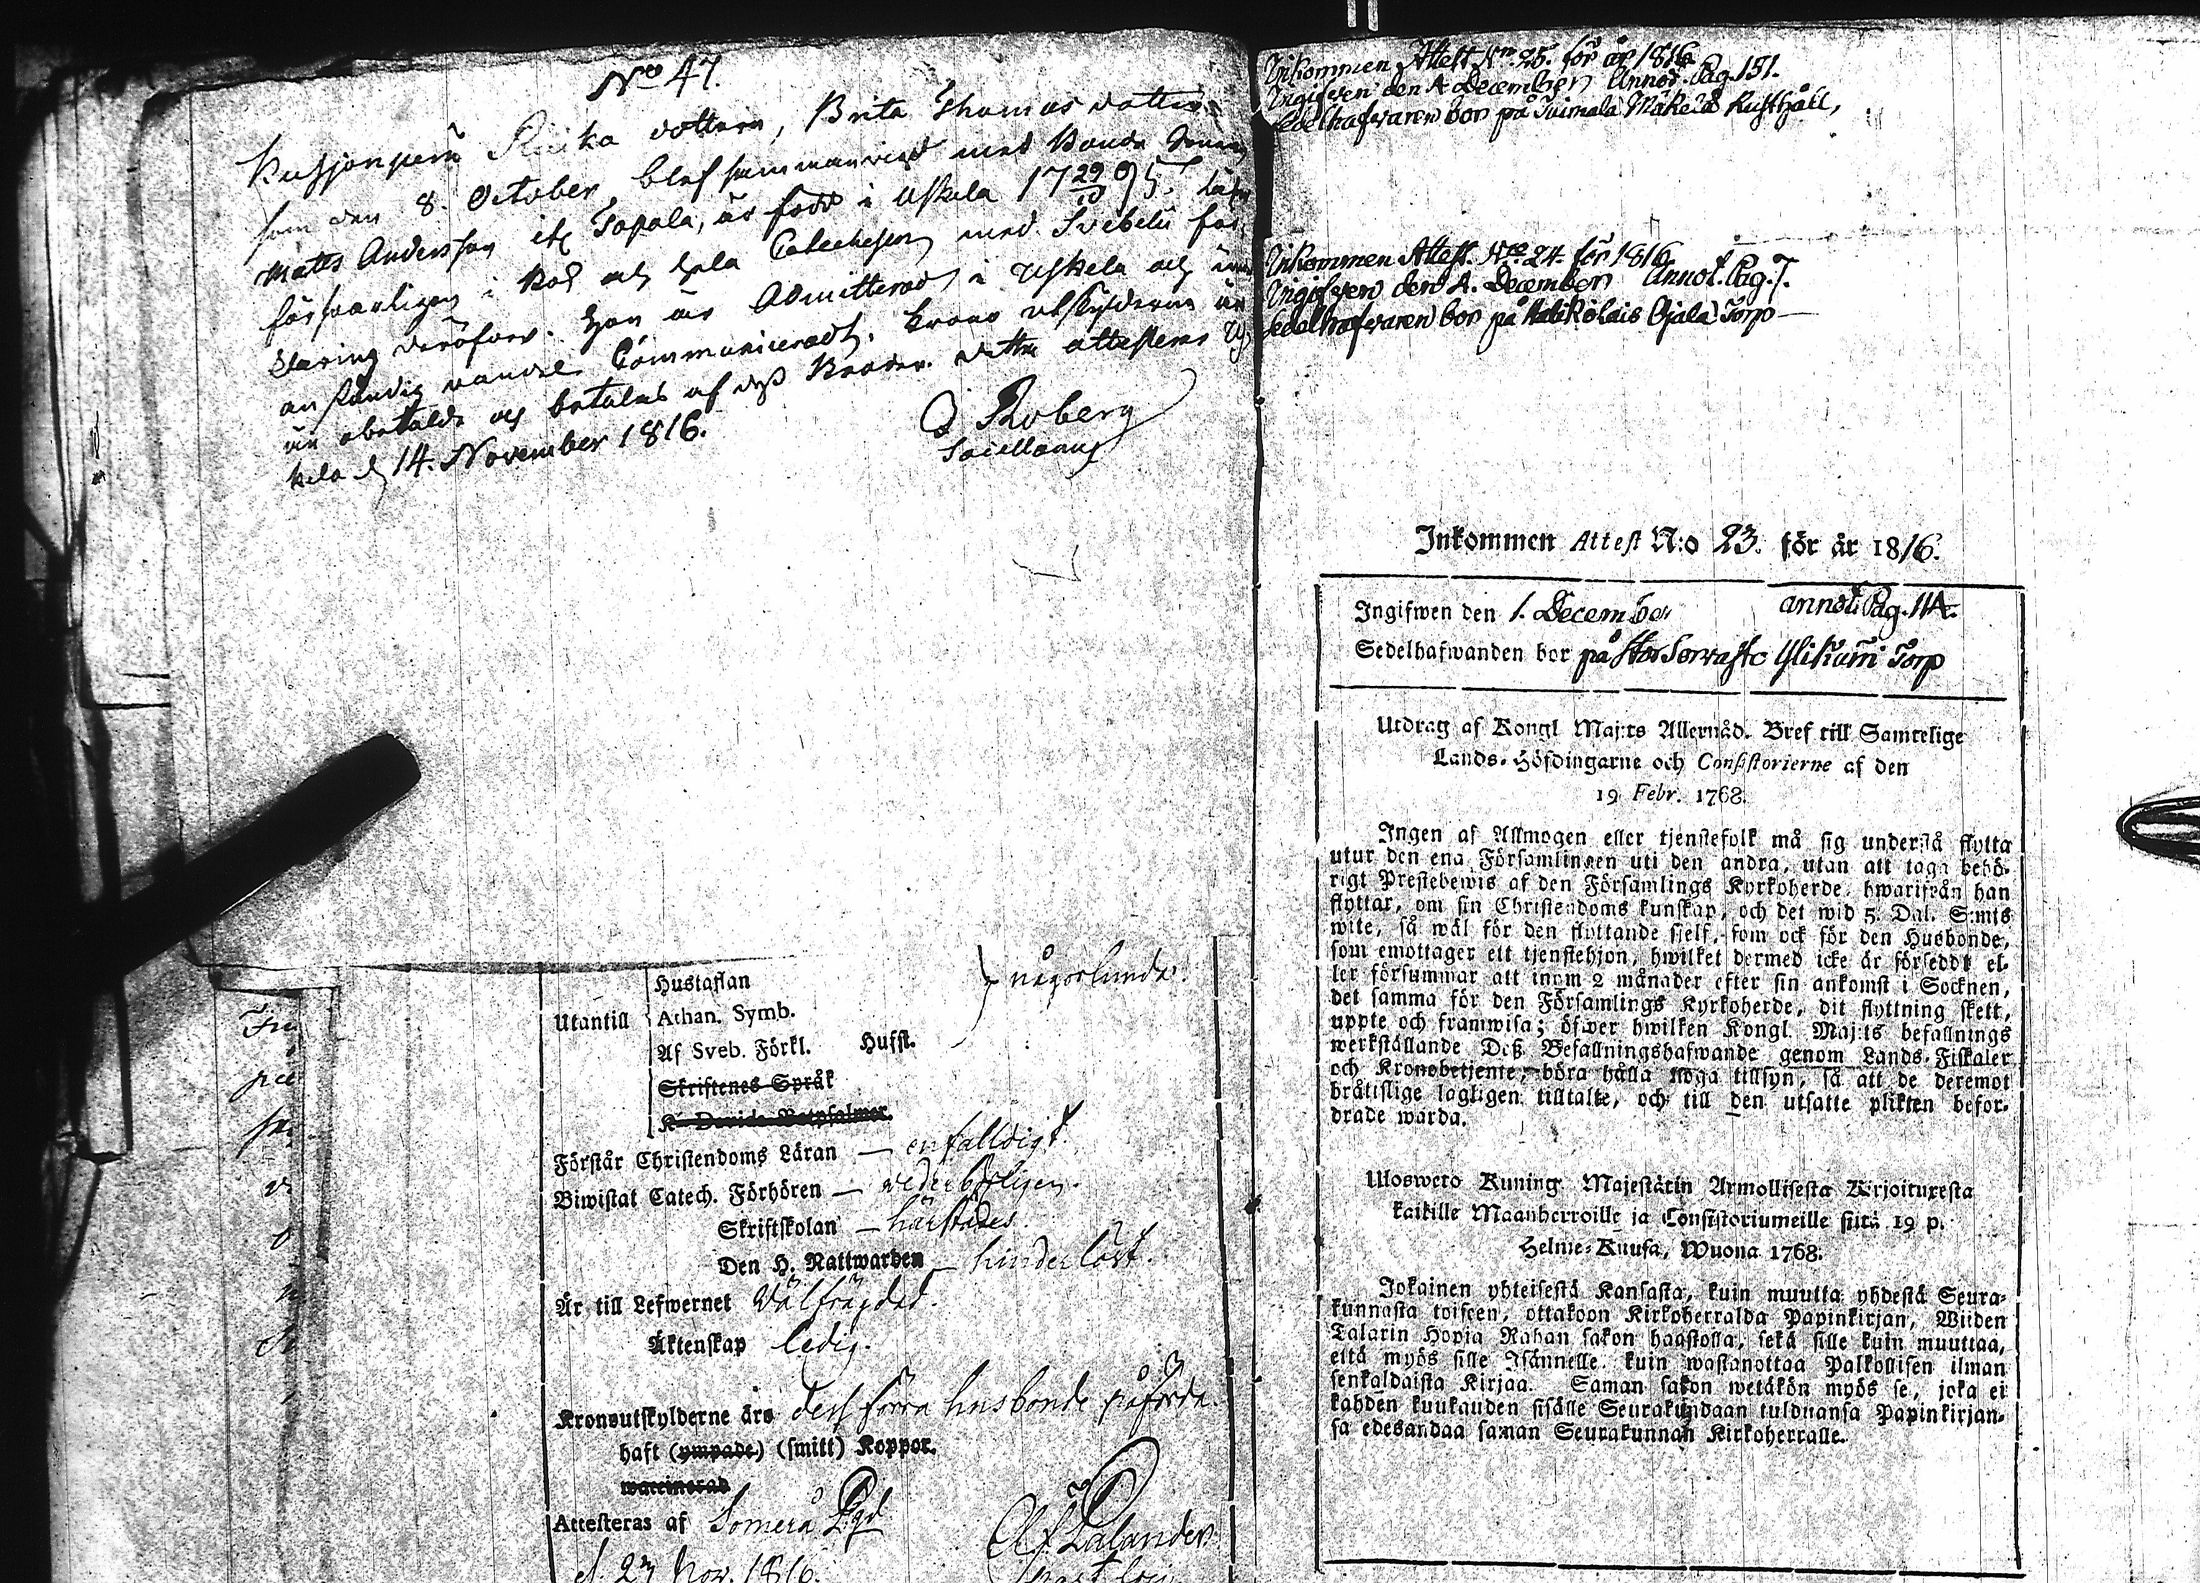 No 47.
dottern, Brita Thomas dotter
som den 8. October blef sammanvigd med Bonde
Matts Andersson ifr Tapala, är född i Uskela 17 29/10 95.
försvarligen i Bok och hela Catechesen med Svebelii för
klaring deröfver. Hon är Admitterad i Uskela och
anständig vandel Communicerat. Krono utskylderna
äro obetalde och betalas af dess Broder. Detta attesteras
kela d 14. November 1816.
Roberg
Sacellanus
Hustaflan
någorlunda.
Utantill
Athan. Symb.
Af Sveb. Förkl. Husst.
Skriftenes Språk
K. Davids Botpsalmer.
Förstår Christendoms Läran — enfalldigt.
Biwistat Catech. Förhören — vederbörligen.
Skriftskolan — härstädes.
Den H. Nattwarden — hinderlöst.
Är till Lefwernet Välfrägdad.
Äktenskap ledig.
Kronoutskylderne äro dess förra husbonde påförda.
haft (ympade) (smitt) Koppor.
waccinerad
Attesteras af Somero Pgd
d. 23 Nov. 1816.
Inkommen Attest Nro 25. för år 1816
Ingifven den 4 December Annot. Pag. 151.
Sedelhafvaren bor på Mäkelä Rusthåll,
Inkommen Attest. Nro 24. för 1816
Ingifven den 4. December Annot. Pag. 7.
Sedelhafvaren bor på Ojala Torp —
Inkommen Attest N:o 23. för år 1816.
Ingifwen den 1. December annot. Pag. 114.
Sedelhafwanden bor på Torp
Utdrag af Kongl Maj:ts Allernåd. Bref till Samtelige
Lands-Höfdingarne och Consistorierne af den
19 Febr. 1768.
Ingen af Allmogen eller tjenstefolk må sig understå flytta
utur den ena Församlingen uti den andra, utan att taga behö-
rigt Prestebewis af den Församlings Kyrkoherde, hwarifrån han
flyttar, om sin Christendoms kunskap, och det wid 5. Dal. S:mts
wite, så wäl för den flyttande sjelf, som ock för den Husbonde,
som emottager ett tjenstehjon, hwilket dermed icke är försedd el-
ler försummar att inom 2 månader efter sin ankomst i Socknen,
det samma för den Församlings Kyrkoherde, dit flyttning skett,
uppte och framwisa; öfwer hwilken Kongl. Maj:ts befallnings
werkställande Deß Befallningshafwande genom Lands-Fiskaler
och Kronobetjente, böra hålla noga tillsyn, så att de deremot
bråtislige lagligen tilltalte, och till den utsatte plikten befor-
drade warda.
Uloswero Kuning. Majestätin Armollisesta Kirjoituresta
kaikille Maanherroille ja Consistoriumeille siitä 19 p.
Helme-Kuusa, Wuona 1768.
Jokainen yhteisestä Kansasta, kuin muutta yhdestä Seura-
kunnasta toiseen, ottakoon Kirkoherralda Papinkirjan, Wiiden
Talarin Hopia Rahan sakon haastolla, sekä sille kuin muuttaa,
että myös sille Isännelle, kuin wastanottaa Palkollisen ilman
senkaldaista Kirjaa. Saman sakon wetäkön myös se, joka ei
kahden kuukauden sisälle Seurakundaan tulduansa Papinkirjan-
sa edesandaa saman Seurakunnan Kirkoherralle.